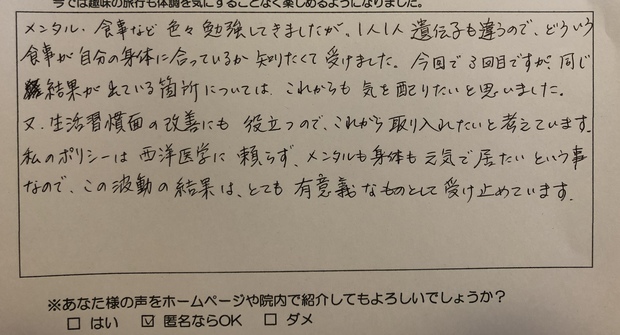 今では趣味の旅行も体調を気にすることなく楽しめるようになりました。
メンタル・食事など色々勉強してきましたが、1人1人遺伝子も違うので、どういう
食事が自分の身体に合っているか知りたくて受けました。今回で3回目ですが、同じ
結果が出ている箇所については、これからも気を配りたいと思いました。
又、生活習慣面の改善にも役立つので、これから取り入れたいと考えています。
私のポリシーは西洋医学に頼らず、メンタルも身体も元気で居たいという事
なので、この波動の結果は、とても有意義なものとして受け止めています。
※あなた様の声をホームページや院内で紹介してもよろしいでしょうか？
□ はい ☑ 匿名ならOK □ ダメ